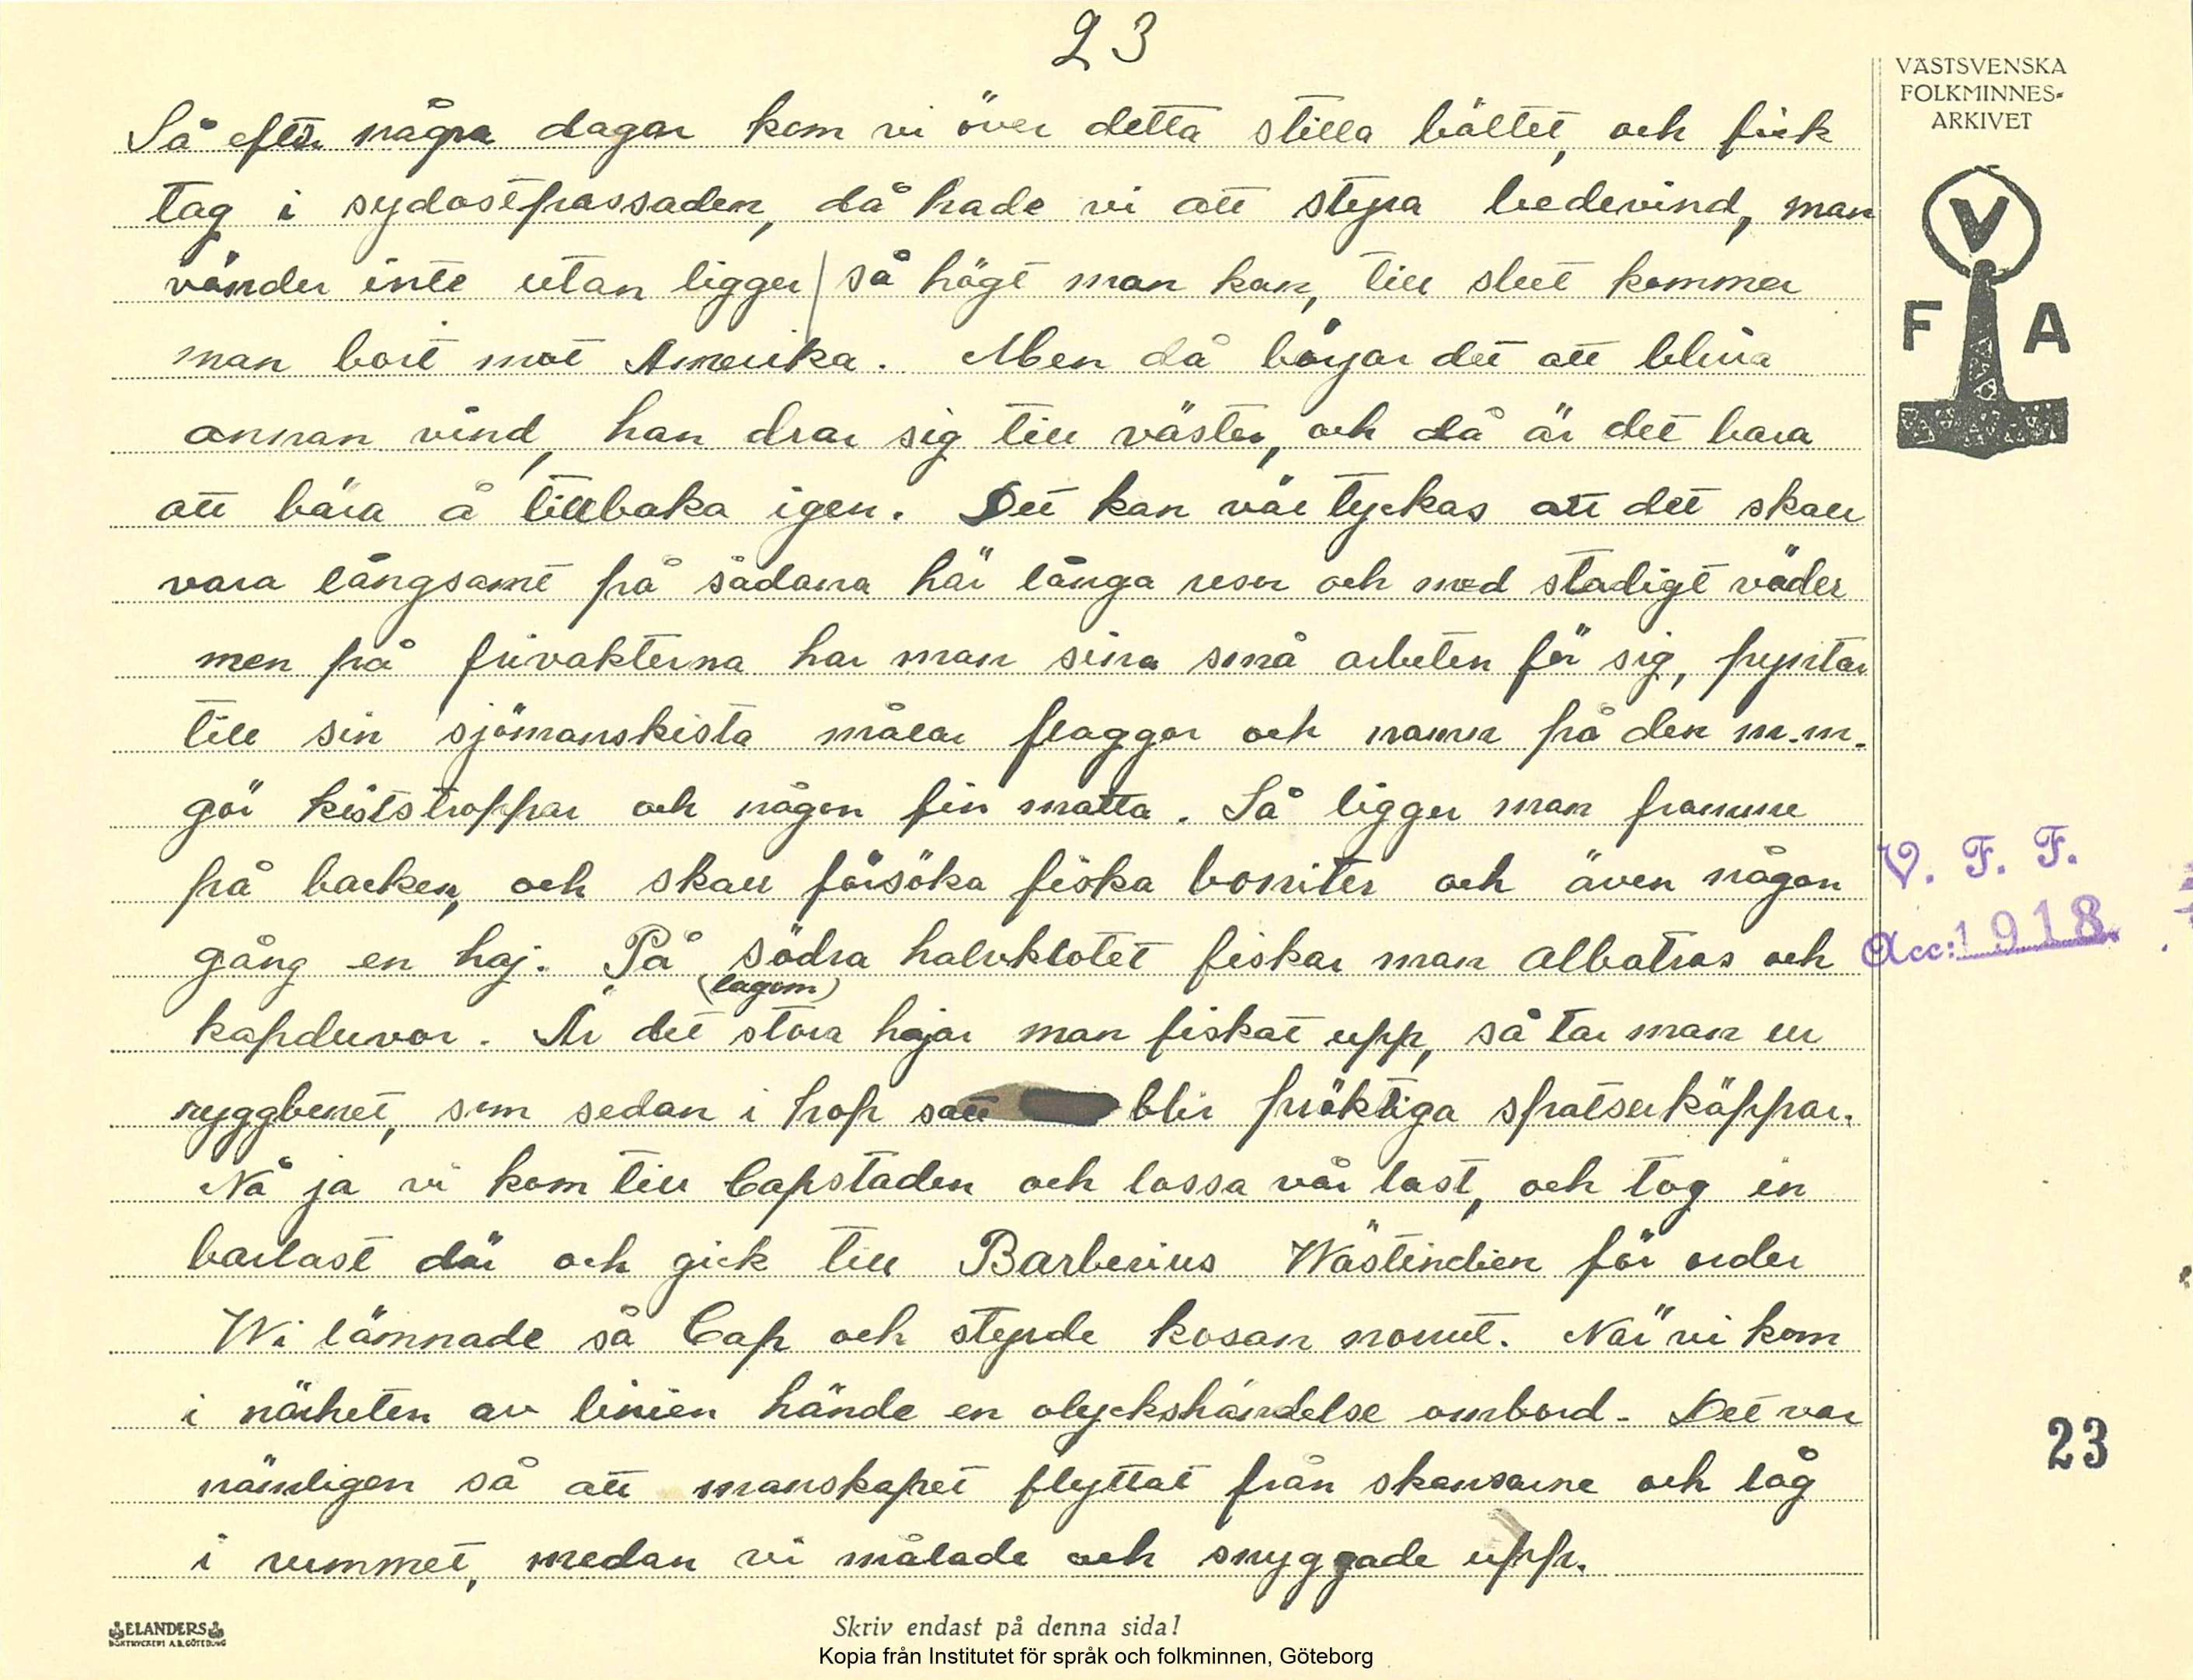 23
Så efter några dagar kom vi över detta stilla bältet, och fick
tag i sydostpassaden, då hade vi att styra bedevind, man
vänder inte utan ligger så högt man kan, till slut kommer
man bort mot Amerika. Men då börjar det att bliva
annan vind, han drar sig till väster, och då är det bara
att bära å tillbaka igen. Det kan väl tyckas att det skall
vara långsamt på sådana här långa resor och med stadigt väder
men på frivakterna har man sina små arbeten för sig, pyntar
till sin sjömanskista målar flaggor och namn på den m.m.
gör kiststroppar och någon fin matta. Så ligger man framme
på backen, och skall försöka fiska boniter och även någon
gång en haj. På södra halvklotet fiskar man albatros och
(lagom)
kapduvor. Är det stora hajar man fiskat upp, så tar man ur
ryggbenet, som sedan i hop satt blir präktiga spatserkäppar.
Nå ja vi kom till Capstaden och lossa vår last, och tog in
barlast där och gick till Barberius Wästindien för order
Wi lämnade så Cap och styrde kosan norrut. När vi kom
i närheten av linien hände en olyckshändelse ombord. Det var
nämligen så att manskapet flyttat från skansarne och låg
i rummet, medan vi målade och snyggade upp.
VÄSTSVENSKA
FOLKMINNES-
ARKIVET
V
F A
V. F. F.
Acc: 1918
23
ELANDERS
BOKTRYCKERI A.B. GÖTEBORG
Skriv endast på denna sida!
Kopia från Institutet för språk och folkminnen, Göteborg